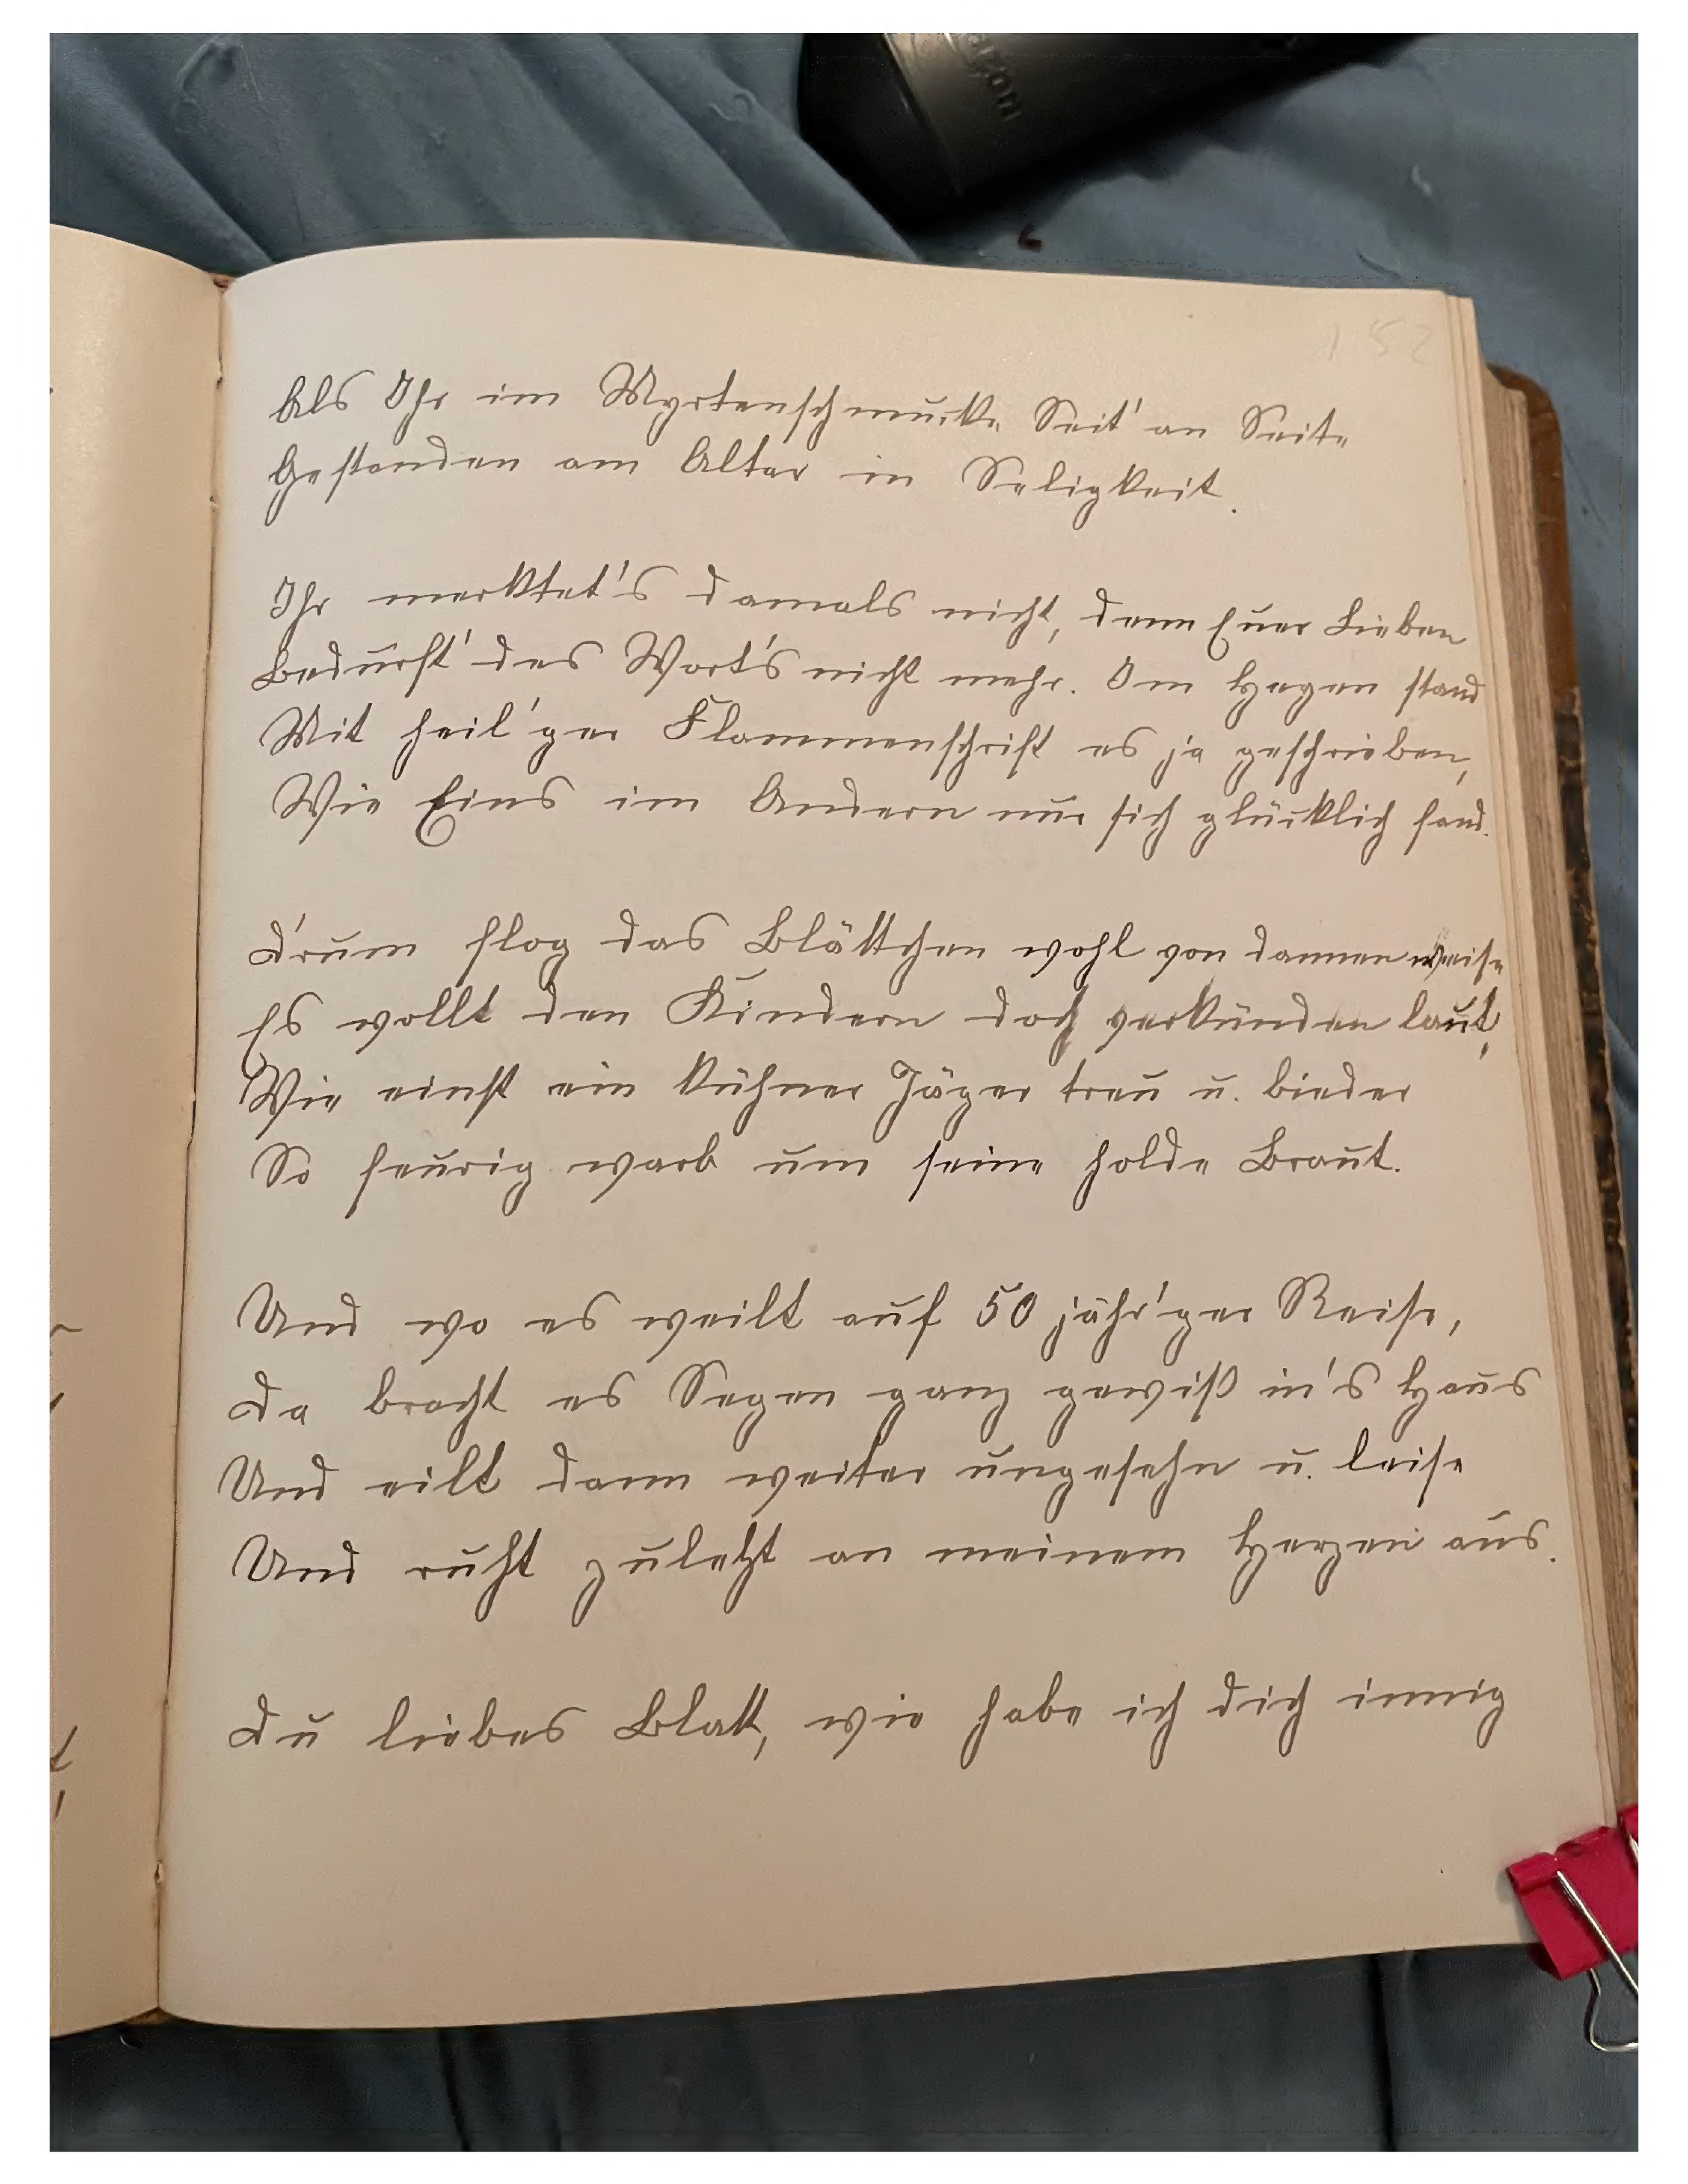 152
Als Ihr im Myrtenschmucke Seit' an Seite
Gestanden am Altar in Seligkeit.
Ihr merktet's damals nicht, denn Euer Lieben
Bedurft' des Wort's nicht mehr. Im Herzen stand
Mit heil'ger Flammenschrift es ja geschrieben,
Wie Eins im Andern nur sich glücklich fand.
D'rum flog das Blättchen wohl von dannen weise
Es wollt den Kindern doch verkünden laut,
Wie einst ein kühner Jäger treu u. bieder
So feurig warb um seine holde Braut.
Und wo es weilt auf 50 jähr'ger Reise,
Da bracht es Segen ganz gewiß in's Haus
Und eilt dann weiter ungesehn u. leise
Und ruht zuletzt an meinem Herzen aus.
Du liebes Blatt, wie habe ich dich innig